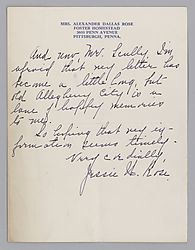 MRS. ALEXANDER DALLAS ROSE
FOSTER HOMESTEAD
3600 PENN AVENUE
PITTSBURGH, PENNA.
And now Mr. Scully, I'm
afraid that my letter has
become a little long, but
old Allegheny City is a
land of happy memories
to me.
So hoping that my in-
formation seems timely.
Very cordially,
Jessie W. Rose